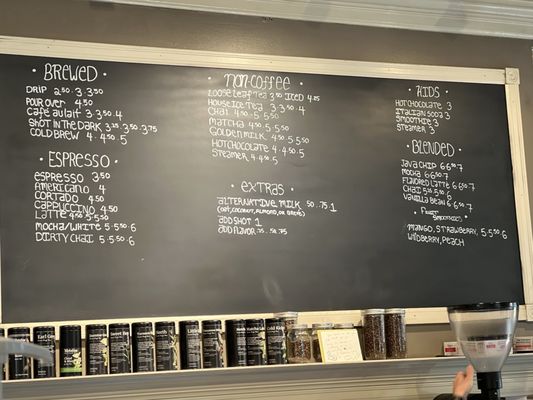 BREWED
DRIP 2.50 · 3 · 3.50
POUR OVER 4.50
CAFÉ AU LAIT 3 · 3.50 · 4
SHOT IN THE DARK 3.25 · 3.50 · 3.75
COLD BREW 4 · 4.50 · 5
ESPRESSO
ESPRESSO 3.50
AMERICANO 4
CORTADO 4.50
CAPPUCCINO 4.50
LATTE 4.50 · 5 · 5.50
MOCHA/WHITE 5 · 5.50 · 6
DIRTY CHAI 5 · 5.50 · 6
NON-COFFEE
LOOSE LEAF TEA 3.50 ICED 4.25
HOUSE ICE TEA 3 · 3.50 · 4
CHAI 4.50 · 5 · 5.50
MATCHA 4.50 · 5 · 5.50
GOLDEN MILK 4.50 · 5 · 5.50
HOT CHOCOLATE 4 · 4.50 · 5
STEAMER 4 · 4.50 · 5
EXTRAS
ALTERNATIVE MILK .50 · .75 · 1
(OAT, COCONUT, ALMOND, OR BREVE)
ADD SHOT 1
ADD FLAVOR .25 · .50 · .75
KIDS
HOT CHOCOLATE 3
ITALIAN SODA 3
SMOOTHIE 3
STEAMER 3
BLENDED
JAVA CHIP 6 · 6.50 · 7
MOCHA 6 · 6.50 · 7
FLAVORED LATTE 6 · 6.50 · 7
CHAI
VANILLA BEAN 6 · 6.50 · 7
FRUIT
SMOOTHIES
MANGO, STRAWBERRY, 5 · 5.50 · 6
WILDBERRY, PEACH